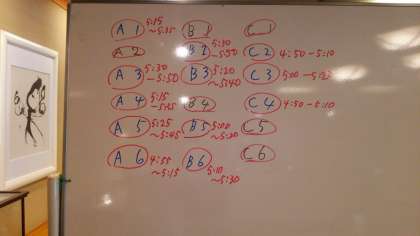 A 1 5:15 B 1 C 1
A 2 B 2 5:30 ~5:50 C 2 4:50-5:10
A 3 5:30 ~5:50 B 3 5:20 ~5:40 C 3 5:00
A 4 5:15 B 4 C 4 4:50-5:10
A 5 5:25 ~5:45 B 5 5:00 C 5
A 6 4:55 ~5:15 B 6 5:10 ~5:30 C 6